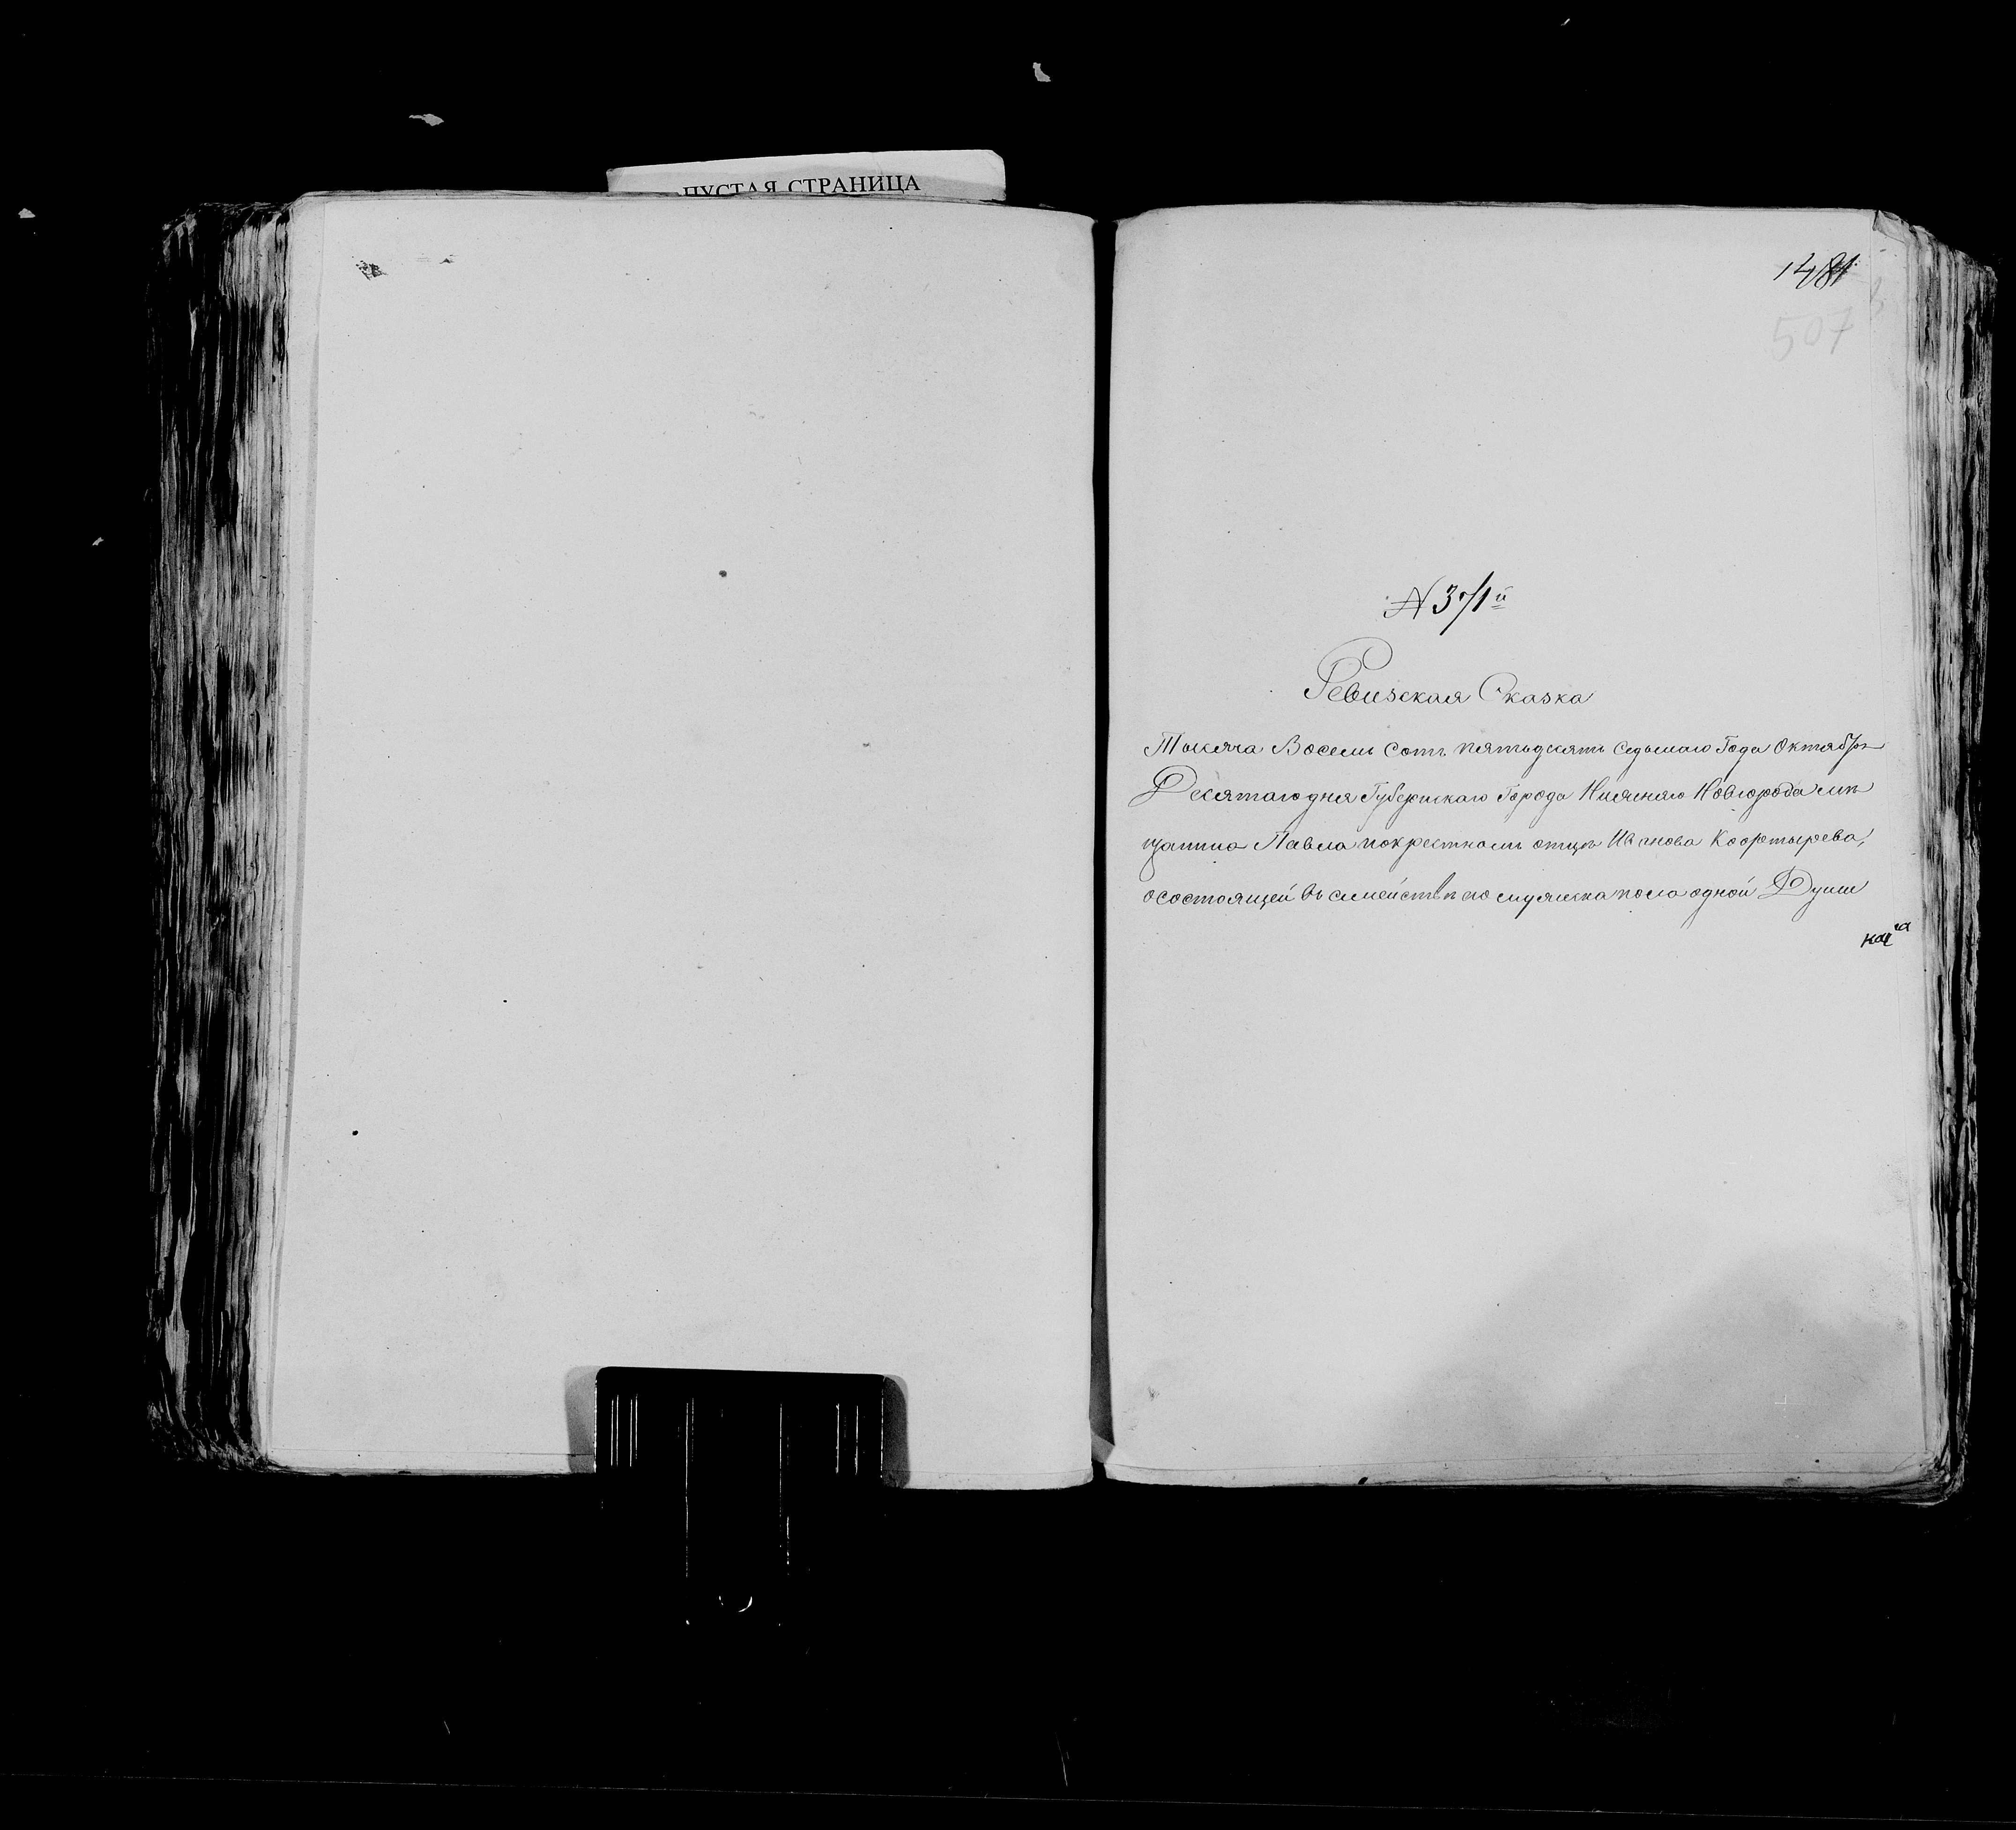 ПУСТАЯ СТРАНИЦА
1481
507
№ 371й
Ревизская Сказка
Тысяча Восемь Сотъ пятьдесятъ седьмаго Года Октября
Десятаго дня Губернскаго Города Нижняго Новгорода мѣ
щанина Павла покрестномъ отцѣ Иванова
осостоящей въ семействѣ его мужеска пола одной Души